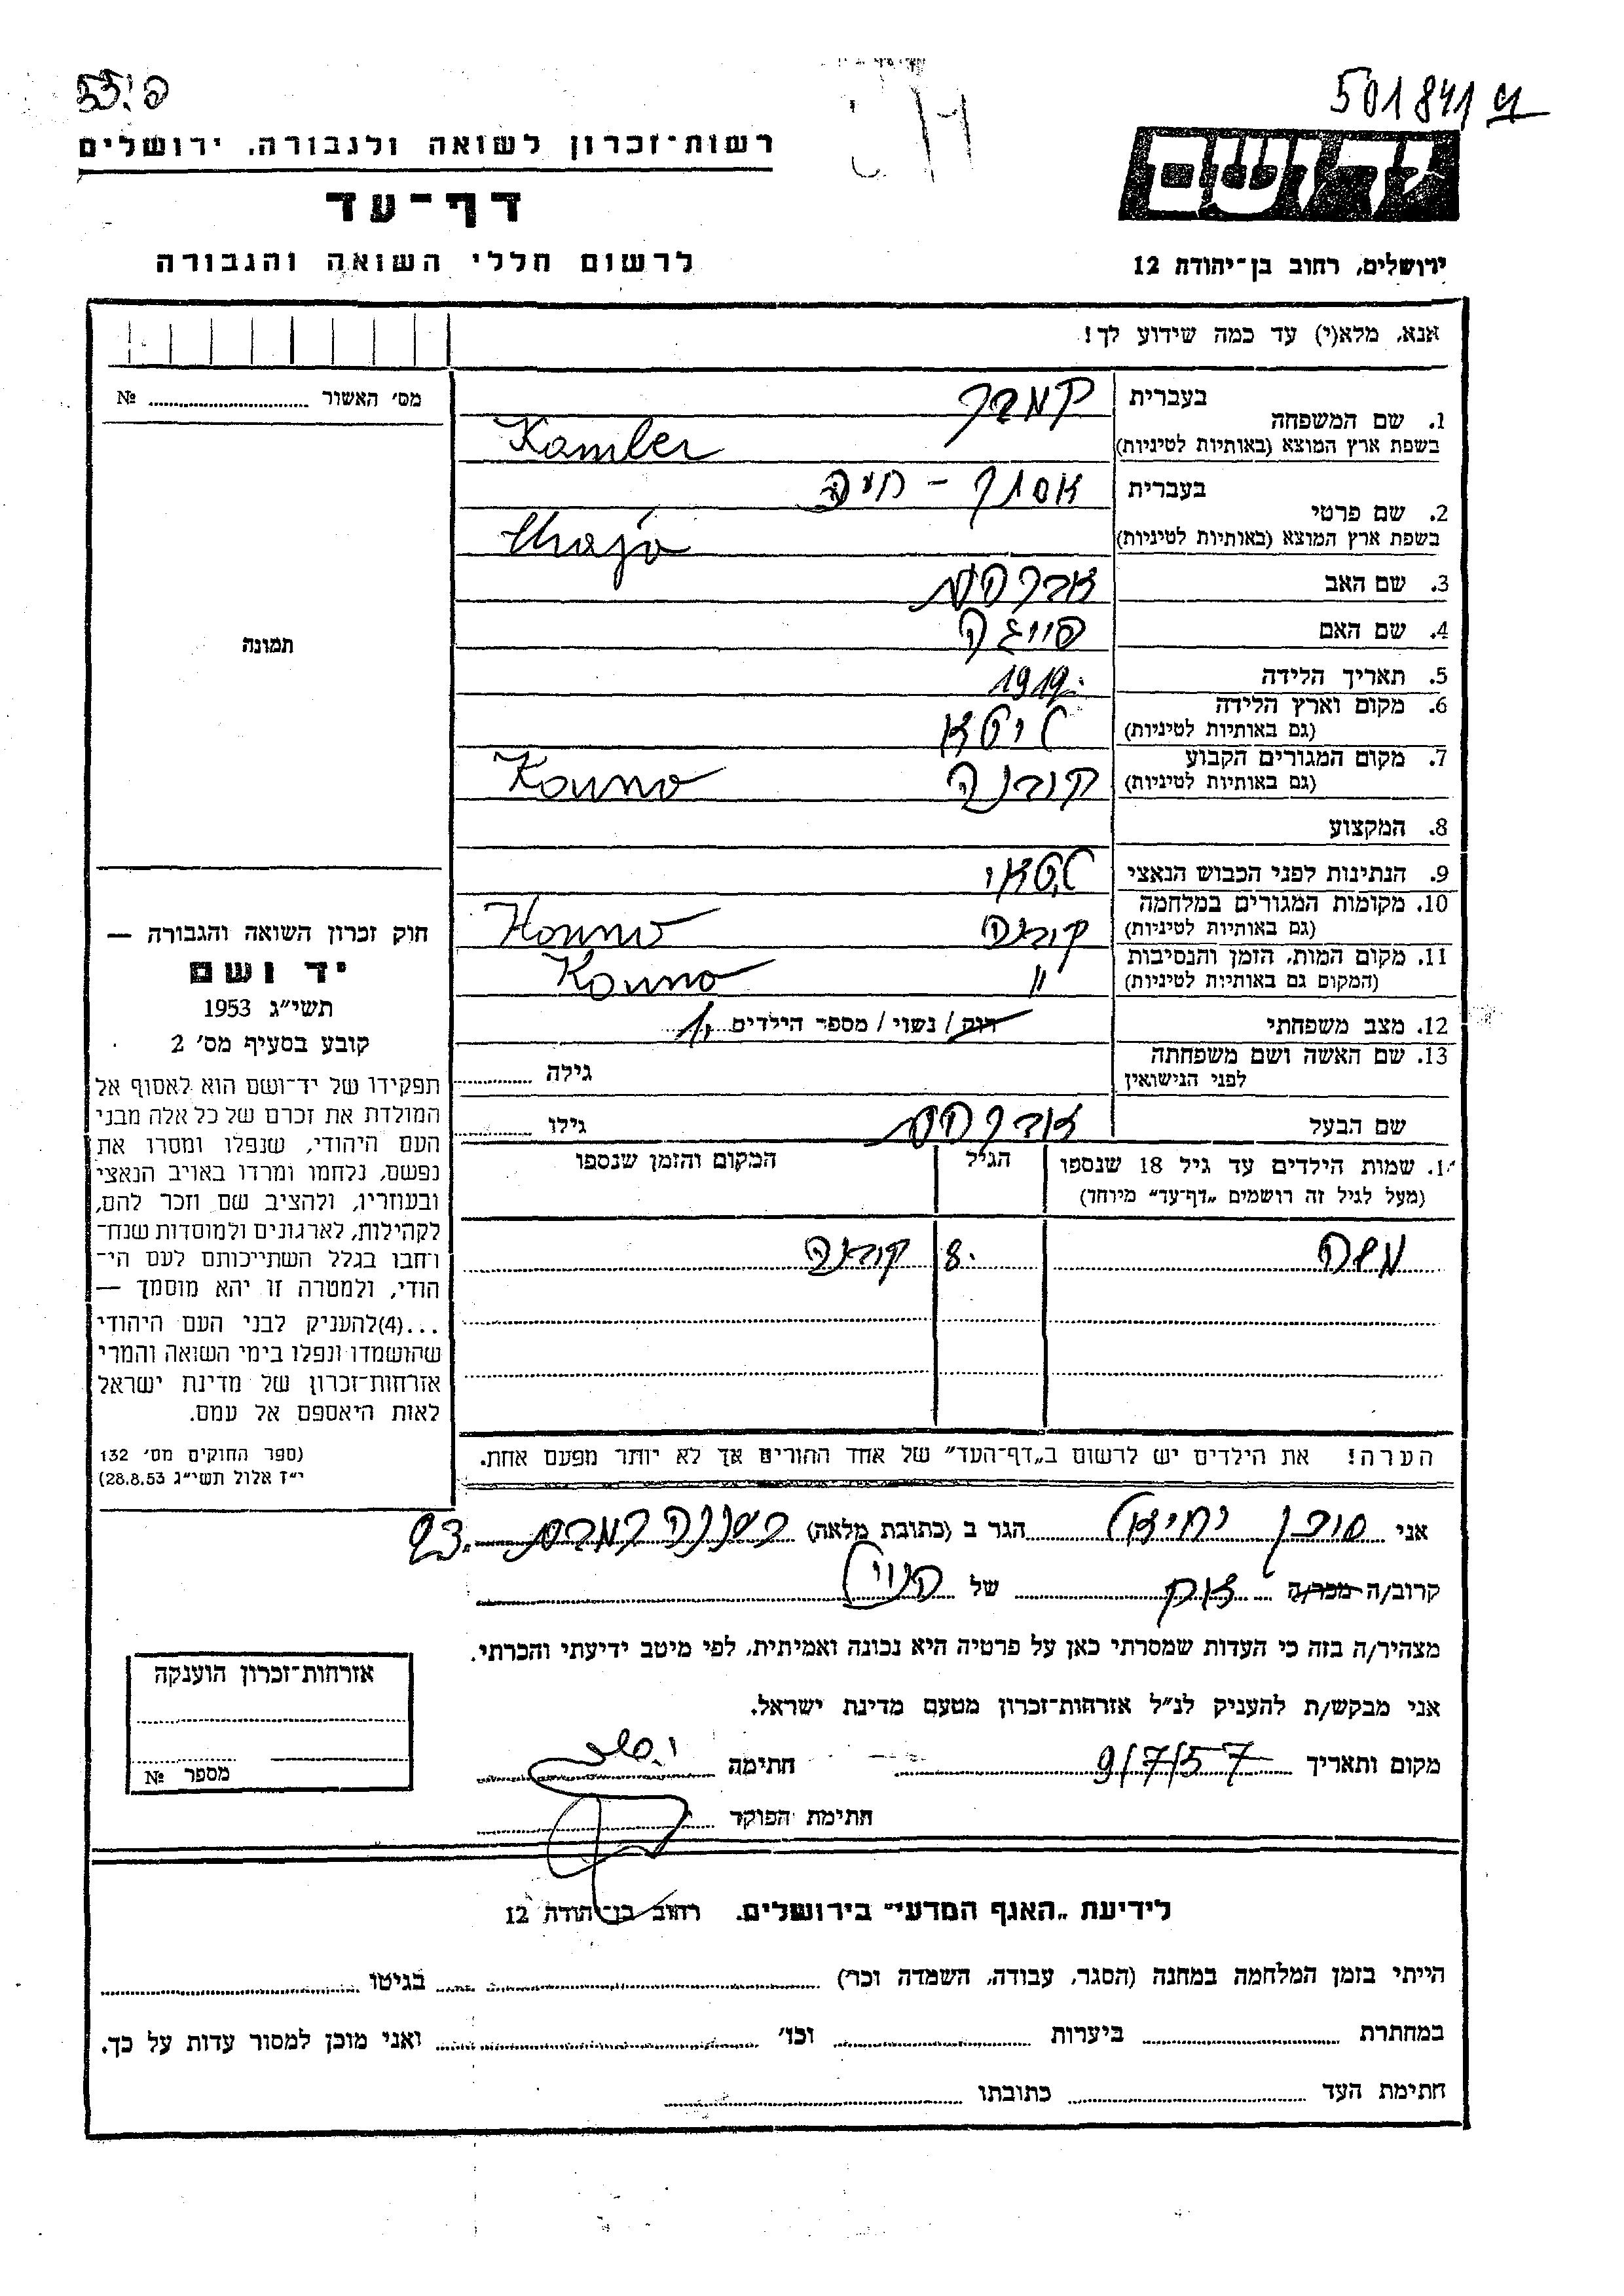 501841
יד ושם
רשות-זכרון לשואה ולגבורה, ירושלים
דף-עד
לרשום חללי השואה והגבורה
ירושלים, רחוב בן-יהודה 12
אנא, מלא(י) עד כמה שידוע לך!
מס' האשור № 
תמונה
1. שם המשפחה בעברית קמבר
בשפת ארץ המוצא (באותיות לטיניות) Kamber
2. שם פרטי בעברית אסתר - חיה
בשפת ארץ המוצא (באותיות לטיניות) Chaja
3. שם האב אברהם
4. שם האם פייגה
5. תאריך הלידה 1919
6. מקום וארץ הלידה ליטא
(גם באותיות לטיניות)
7. מקום המגורים הקבוע קובנה Kouno
(גם באותיות לטיניות)
8. המקצוע
9. הנתינות לפני הכבוש הנאצי ליטאי
10. מקומות המגורים במלחמה קובנה Kouno
(גם באותיות לטיניות)
11. מקום המות, הזמן והנסיבות " Kouno
(המקום גם באותיות לטיניות)
12. מצב משפחתי רווק / נשוי / מספר הילדים 1
13. שם האשה ושם משפחתה גילה
לפני הנישואין
שם הבעל אברהם גילו
14. שמות הילדים עד גיל 18 שנספו הגיל המקום והזמן שנספו
(מעל לגיל זה רושמים „דף-עד" מיוחד)
משה 8 קובנה
הערה! את הילדים יש לרשום ב„דף-העד" של אחד ההורים אך לא יותר מפעם אחת.
חוק זכרון השואה והגבורה —
יד ושם
תשי"ג 1953
קובע בסעיף מס' 2
תפקידו של יד-ושם הוא לאסוף אל
המולדת את זכרם של כל אלה מבני
העם היהודי, שנפלו ומסרו את
נפשם, נלחמו ומרדו באויב הנאצי
ובעוזריו, ולהציב שם וזכר להם,
לקהילות, לארגונים ולמוסדות שנח-
רחבו בגלל השתייכותם לעם הי-
הודי, ולמטרה זו יהא מוסמך —
...(4)להעניק לבני העם היהודי
שהושמדו ונפלו בימי השואה והמרי
אזרחות-זכרון של מדינת ישראל
לאות היאספם אל עמם.
(ספר החוקים מס' 132
י"ז אלול תשי"ג 28.8.53)
אני יחיאל הגר ב (כתובת מלאה) 23
קרוב/ה מכר/ה של
מצהיר/ה בזה כי העדות שמסרתי כאן על פרטיה היא נכונה ואמיתית, לפי מיטב ידיעתי והכרתי.
אני מבקש/ת להעניק לנ"ל אזרחות-זכרון מטעם מדינת ישראל.
מקום ותאריך 9/7/57 חתימה
חתימת הפוקד
אזרחות-זכרון הוענקה
מספר №
לידיעת „האגף המדעי" בירושלים. רחוב בן-יהודה 12
הייתי בזמן המלחמה במחנה (הסגר, עבודה, השמדה וכו') בגיטו
במחתרת ביערות וכו' ואני מוכן למסור עדות על כך.
חתימת העד כתובתו